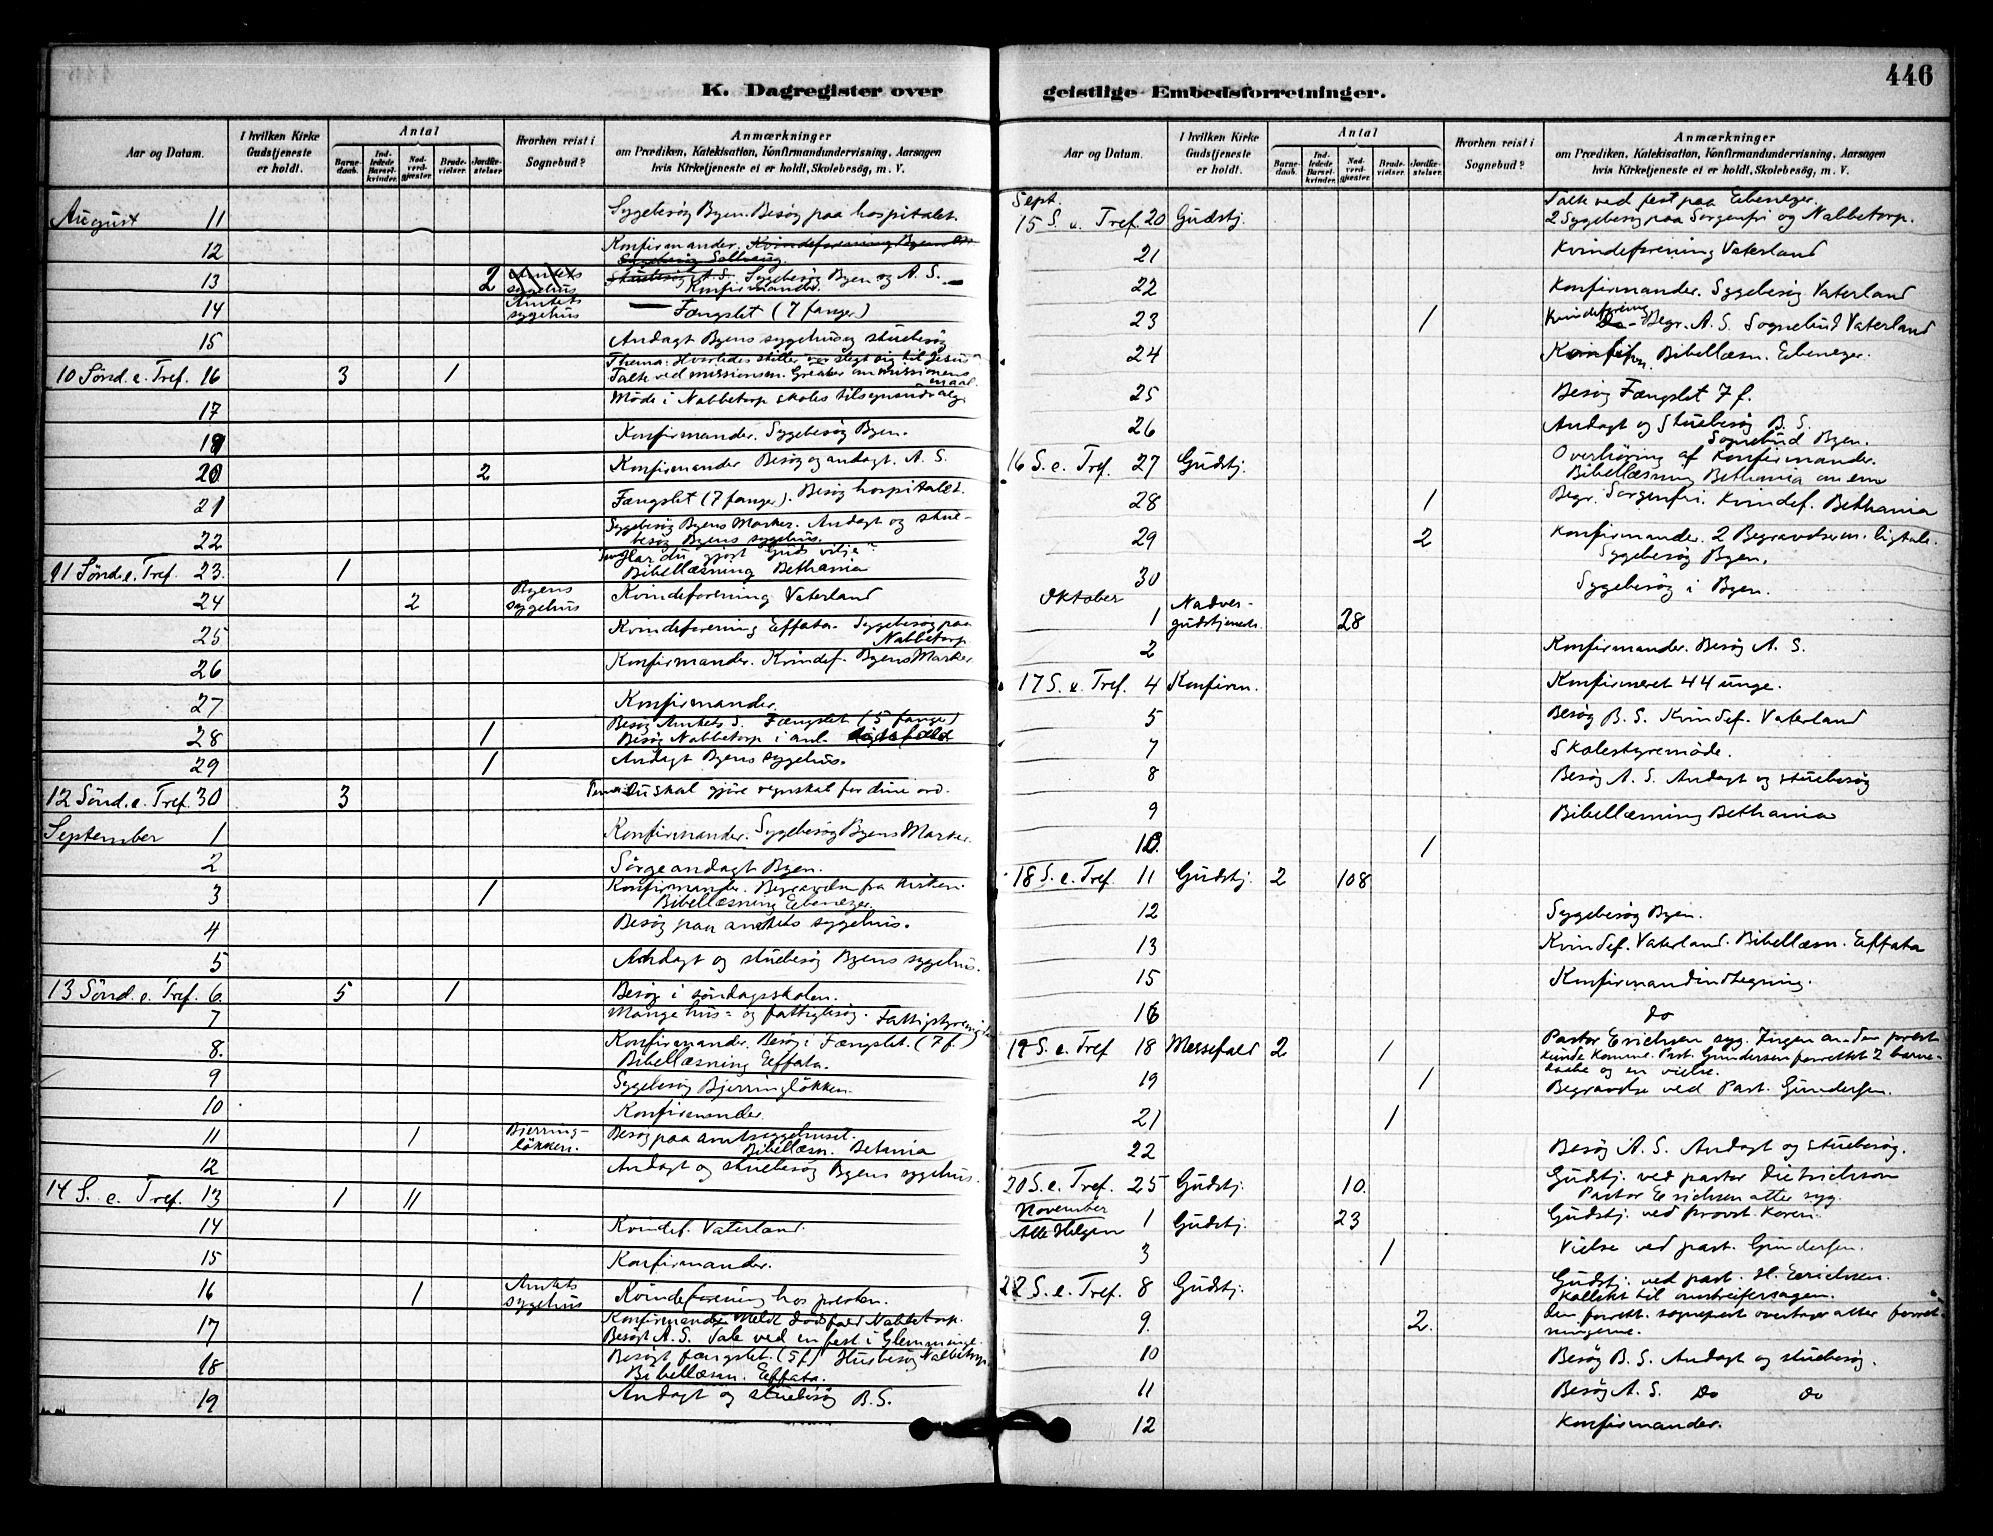 446
K. Dagregister over
geistlige Embedsforretninger.
Aar og Datum.
I hvilken Kirke Gudstjeneste er holdt.
Antal
Barnedaab.
Indledede Barselkvinder.
Nadverdgjæster.
Brudevielser.
Jordfæstelser.
Hvorhen reist i Sognebud?
Anmærkninger
om Prædiken, Katekisation, Konfirmandundervisning, Aarsagen
hvis Kirketjeneste ei er holdt, Skolebesøg, m. V.
August 11 Sygebesøg Byen. Besøg paa hospitalet.
12 Konfirmander. Kvindeforening Byens
13 2 Amtets sygehus A. S. Sygebesøg Byen og A. S.
Konfirmander.
14 Amtets sygehus Fængslet (7 fanger)
15 Andagt Byens sygehus og stuebesøg
10 Sønd. e. Tref. 16 3 1 Thema: Hvorledes stiller vor slegt sig til Jesus
Talte ved missionsm.
17 Møde i Nabbetorp skoles tilsynsudvalg.
18 Konfirmander. Sygebesøg Byen.
20 2 Konfirmander Besøg og andagt. A. S.
21 Fængslet (7 fanger). Besøg hospitalet.
22 Sygebesøg Byens Marker. Andagt og stuebesøg Byens sygehus.
11 Sønd. e. Tref. 23. 1 Har du gjort Guds vilje?
Bibellæsning Bethania
24 2 Byens sygehus Kvindeforening Vaterland
25 Kvindeforening Effata. Sygebesøg paa
Nabbetorp.
26 Konfirmander. Kvindef. Byens Marker
27 Konfirmander.
28 1 Besøg Amtets S. Fængslet (5 fanger)
Besøg Nabbetorp i anl. dødsfald
29 1 Andagt Byens sygehus.
12 Sønd. e. Tref. 30 3 Du skal gjøre regnskab for dine ord.
September 1 Konfirmander. Sygebesøg Byens Marker.
2 Sørgeandagt Byen.
3 1 Konfirmander. Begravelse fra kirken.
Bibellæsning Ebenezer.
4 Besøg paa amtets sygehus.
5 Andagt og stuebesøg Byens sygehus.
13 Sønd. e. Tref. 6. 5 1 Besøg i søndagsskolen.
7 Mange hus- og fattigbesøg. Fattigstyremøde
8. Konfirmander. Besøg i Fængslet. (7 f.)
Bibellæsning Effata.
9 Sygebesøg Bjerringløkken.
10 Konfirmander.
11 1 Bjerringløkken. Besøg paa amtssygehuset.
Bibellæsn. Betania
12 Andagt og stuebesøg Byens sygehus.
14 S. e. Tref. 13 1 11
14 Kvindef. Vaterland.
15 Konfirmander.
16 1 Amtets sygehus Kvindeforening hos presten.
17 Konfirmander Meldt dødsfald Nabbetorp.
Besøgt A. S. Tale ved en fest i Glemminge.
18 Besøgt fængslet. (5 f) Husbesøg Nabbetorp
Bibellæsn. Effata.
19 Andagt og stuebesøg B. S.
Aar og Datum.
I hvilken Kirke Gudstjeneste er holdt.
Antal
Barnedaab.
Indledede Barselkvinder.
Nadverdgjæster.
Brudevielser.
Jordfæstelser.
Hvorhen reist i Sognebud?
Anmærkninger
om Prædiken, Katekisation, Konfirmandundervisning, Aarsagen
hvis Kirketjeneste ei er holdt, Skolebesøg, m. V.
Sept.
15 S. e. Tref. 20 Gudstj. Talte ved fest paa Ebenezer.
2 Sygebesøg paa Sorgenfri og Nabbetorp.
21 Kvindeforening Vaterland
22 Konfirmander. Sygebesøg Vaterland
23 1 Kvindeforening Begr. A. S. Sognebud Vaterland
24 Konfirm. Bibellæsn. Ebenezer.
25 Besøg Fængslet 7 f.
26 Andagt og Stuebesøg B. S.
Sognebud Byen.
16 S. e. Tref. 27 Gudstj. Overhøring af Konfirmander.
Bibellæsning Bethania om em
28 1 Begr. Sorgenfri. Kvindef. Bethania
29 2 Konfirmander. 2 Begravelser m. ligtale.
Sygebesøg Byen.
30 Sygebesøg i Byen.
Oktober
1 Nadvergudstjeneste 28
2 Konfirmander. Besøg A. S.
17 S. e. Tref. 4 Konfirm. Konfirmeret 44 unge.
5 Besøg B. S. Kvindef. Vaterland
7 Skolestyremøde.
8 Besøg A. S. Andagt og stuebesøg
9 Bibellæsning Bethania
10. 1
18 S. e. Tref. 11 Gudstj. 2 108
12 Sygebesøg Byen.
13 Kvindef. Vaterland. Bibellæsn. Effata
15 Konfirmandindtegning.
16 do
19 S. e. Tref 18 Messefald 2 1 Pastor Erichsen syg. Ingen anden prest
kunde komme. Past. Gundersen forrettet 2 barnedaabe og en vielse.
19 1 Begravelse ved Past. Gundersen.
21 1
22 Besøg A. S. Andagt og stuebesøg.
20 S. e. Tref. 25 Gudstj. 10. Gudstj. ved pastor Dietrichson
Pastor Erichsen atter syg.
November
Alle Helgen 1 Gudstj. 23 Gudstj. ved provst Koren.
3 1 Vielse ved past. Gundersen.
22 S. e. Tref. 8 Gudstj. Gudstj. ved past. H. Erichsen.
Kollekt til omstreifersagen.
9. 2. Den forrett. sogneprest overtager atter forretningerne.
10 Besøg B. S. Andagt og stuebesøg.
11 Besøg A. S. Do Do
12 Konfirmander.